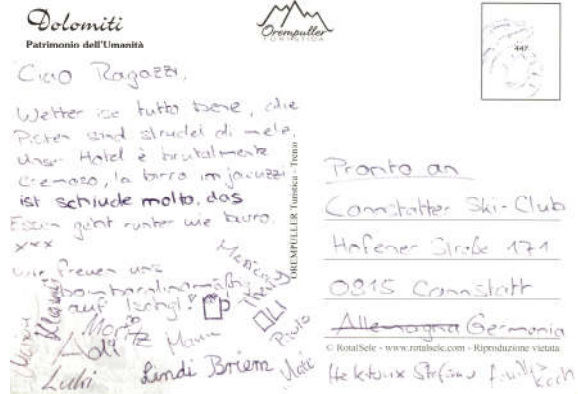 Dolomiti
Patrimonio dell'Umanità
Orempuller
TURISTICA
Ciao Ragazzi,
Wetter ise tutto bene, die
Pisten sind strudel di mele.
Unser Hotel è brutalmente
cremoso, la birra im jacuzzi
ist schiude molto, das
Essen geht runter wie burro.
xxx
wir freuen uns
bombardinomäßig
auf Ischgl!
OREMPULLER Turistica - Trento
Pronto an
Cannstatter Ski-Club
Hofener Straße 171
0815 Cannstatt
Allemagna Germania
© RotalSele - www.rotalsele.com - Riproduzione vietata
Moritz
Adi
Ludi
Lindi Briem
OLI
Stefano
Koch